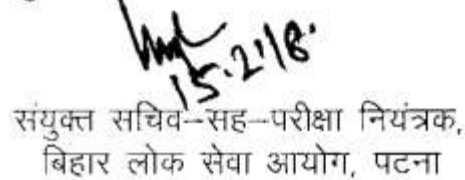 15.2.18.
संयुक्त सचिव–सह–परीक्षा नियंत्रक,
बिहार लोक सेवा आयोग, पटना